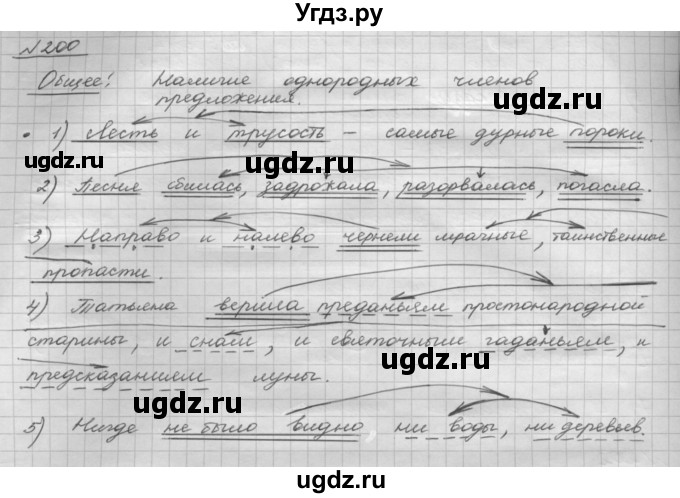 Угдз.ру
№200
Общее: Наличие однородных членов
предложения.
• 1) Лесть и трусость – самые дурные пороки.
2) Песня сбилась, задрожала, разорвалась, погасла.
3) Направо и налево чернели мрачные, таинственные
пропасти.
4) Татьяна верила преданьям простонародной
старины, и снам, и святочным гаданьям, и
предсказанием луны.
5) Нигде не было видно ни воды, ни деревьев.
ugdz.ru
ugdz.ru
ugdz.ru
ugdz.ru
ugdz.ru
ugdz.ru
ugdz.ru
ugdz.ru
Угдз.ру